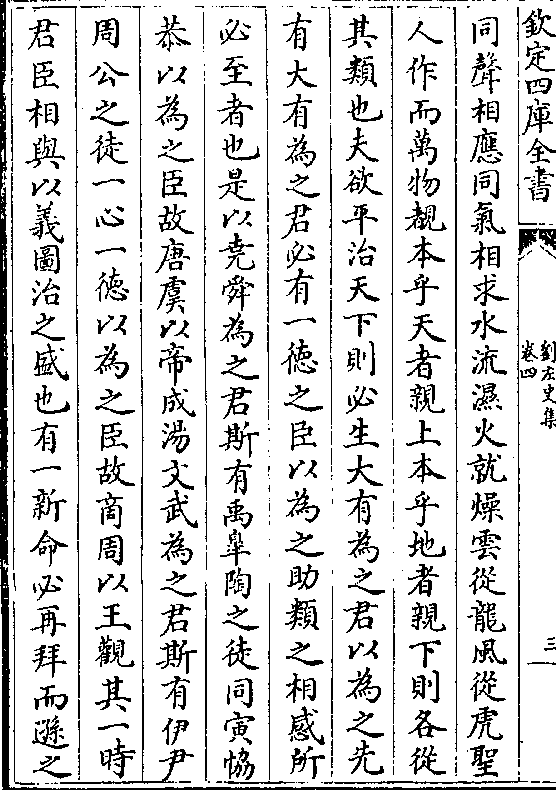 欽定四庫全書
劉左史集
卷四
三
同聲相應同氣相求水流濕火就燥雲從龍風從虎聖
人作而萬物覩本乎天者親上本乎地者親下則各從
其類也夫欲平治天下則必生大有為之君以為之先
有大有為之君必有一徳之臣以為之助類之相感所
必至者也是以堯舜為之君斯有禹臯陶之徒同寅恊
恭以為之臣故唐虞以帝成湯文武為之君斯有伊尹
周公之徒一心一徳以為之臣故商周以王觀其一時
君臣相與以義圖治之盛也有一新命必再拜而遜之